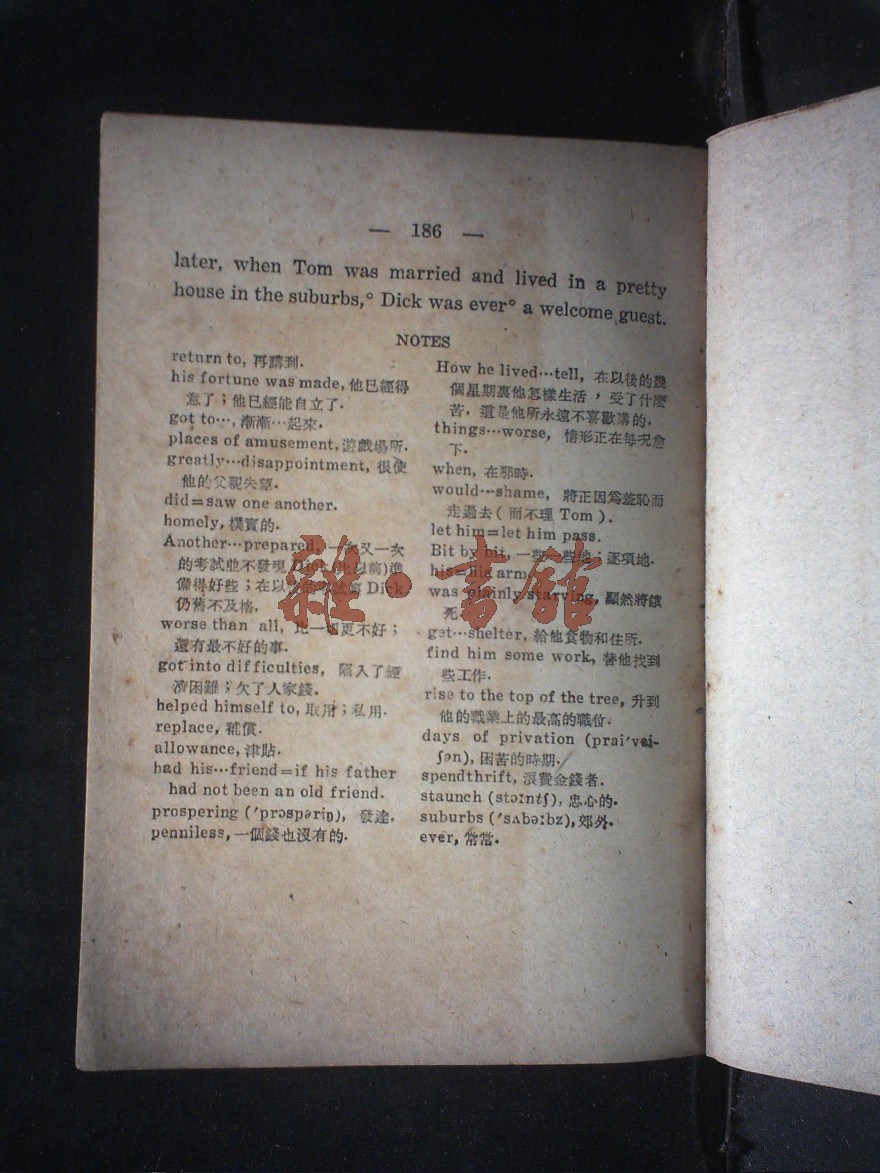 — 186 —
later, when Tom was married and lived in a pretty
house in the suburbs,° Dick was ever° a welcome guest.
NOTES
return to, 再講到.
his fortune was made, 他已經得
意了；他已經能自立了.
got to…, 漸漸…起來.
places of amusement, 遊戲場所.
greatly…disappointment, 很使
他的父親失望.
did=saw one another.
homely, 樸實的.
Another…prepared, 一次又一次
的考試並不發現 Dick (比以前) 準
備得好些；在以後的 Dick
仍舊不及格.
worse than all, 比一切更不好；
還有最不好的事.
got into difficulties, 陷入了經
濟困難；欠了人家錢.
helped himself to, 取用；私用.
replace, 補償.
allowance, 津貼.
had his…friend=if his father
had not been an old friend.
prospering ('prɔspəriŋ), 發達.
penniless, 一個錢也沒有的.
How he lived…tell, 在以後的幾
個星期裏他怎樣生活，受了什麼
苦，這是他所永遠不喜歡講的.
things…worse, 情形正在每況愈
下.
when, 在那時.
would…shame, 將正因爲羞恥而
走過去 ( 而不理 Tom ).
let him=let him pass.
Bit by bit, 一些一些地；逐項地.
his=his arm.
was plainly starving, 顯然將餓
死.
get…shelter, 給他食物和住所.
find him some work, 替他找到
些工作.
rise to the top of the tree, 升到
他的職業上的最高的職位.
days of privation (prai'vei-
ʃən), 困苦的時期.
spendthrift, 浪費金錢者.
staunch (stɔ:ntʃ), 忠心的.
suburbs ('sʌbə:bz), 郊外.
ever, 常常.
雜·書館